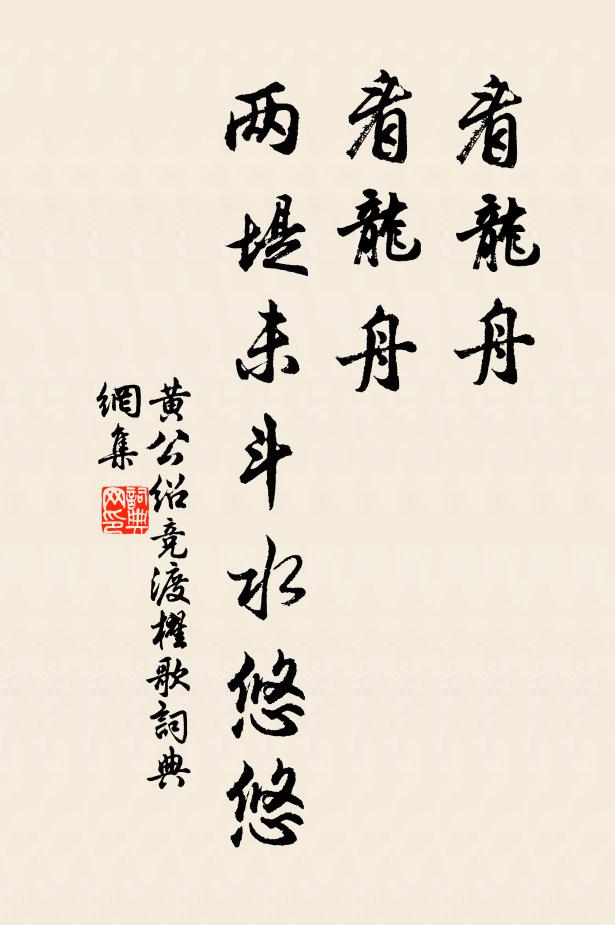 看龍舟
看龍舟
两堤未斗水悠悠
黄公绍竞渡櫂歌詞典
網集
詞典
网印